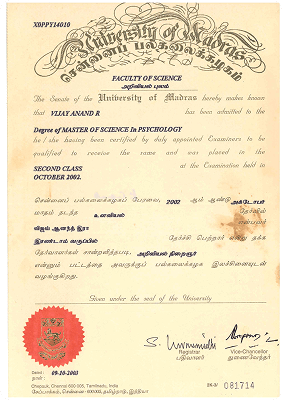 X0PPY14010
University of Madras
சென்னைப் பல்கலைக்கழகம்
FACULTY OF SCIENCE
அறிவியல் புலம்
The Senate of the University of Madras hereby makes known
that VIJAY ANAND R has been admitted to the
Degree of MASTER OF SCIENCE IN PSYCHOLOGY
he / she having been certified by duly appointed Examiners to be
qualified to receive the same and was placed in
at the Examination held in
SECOND CLASS
OCTOBER 2002.
சென்னைப் பல்கலைக்கழகப் பேரவை, 2002 ஆம் ஆண்டு அக்டோபர்
மாதம் நடந்த உளவியல் தேர்வில்
விஜய் ஆனந்த் இரா என்பவர்
இரண்டாம் வகுப்பில் தேர்ச்சி பெற்றார் என்று தக்க
தேர்வாளர்கள் சான்றளித்தபடி, அறிவியல் நிறைஞர்
என்னும் பட்டத்தை அவருக்குப் பல்கலைக்கழக இலச்சினையுடன்
வழங்குகிறது.
Given under the seal of the University
Registrar
பதிவாளர்
Vice-Chancellor
துணைவேந்தர்
Dated: 09-10-2003
நாள்:
Chepauk, Chennai 600 005, Tamilnadu, India
சேப்பாக்கம், சென்னை - 600 005, தமிழ்நாடு, இந்தியா
081714